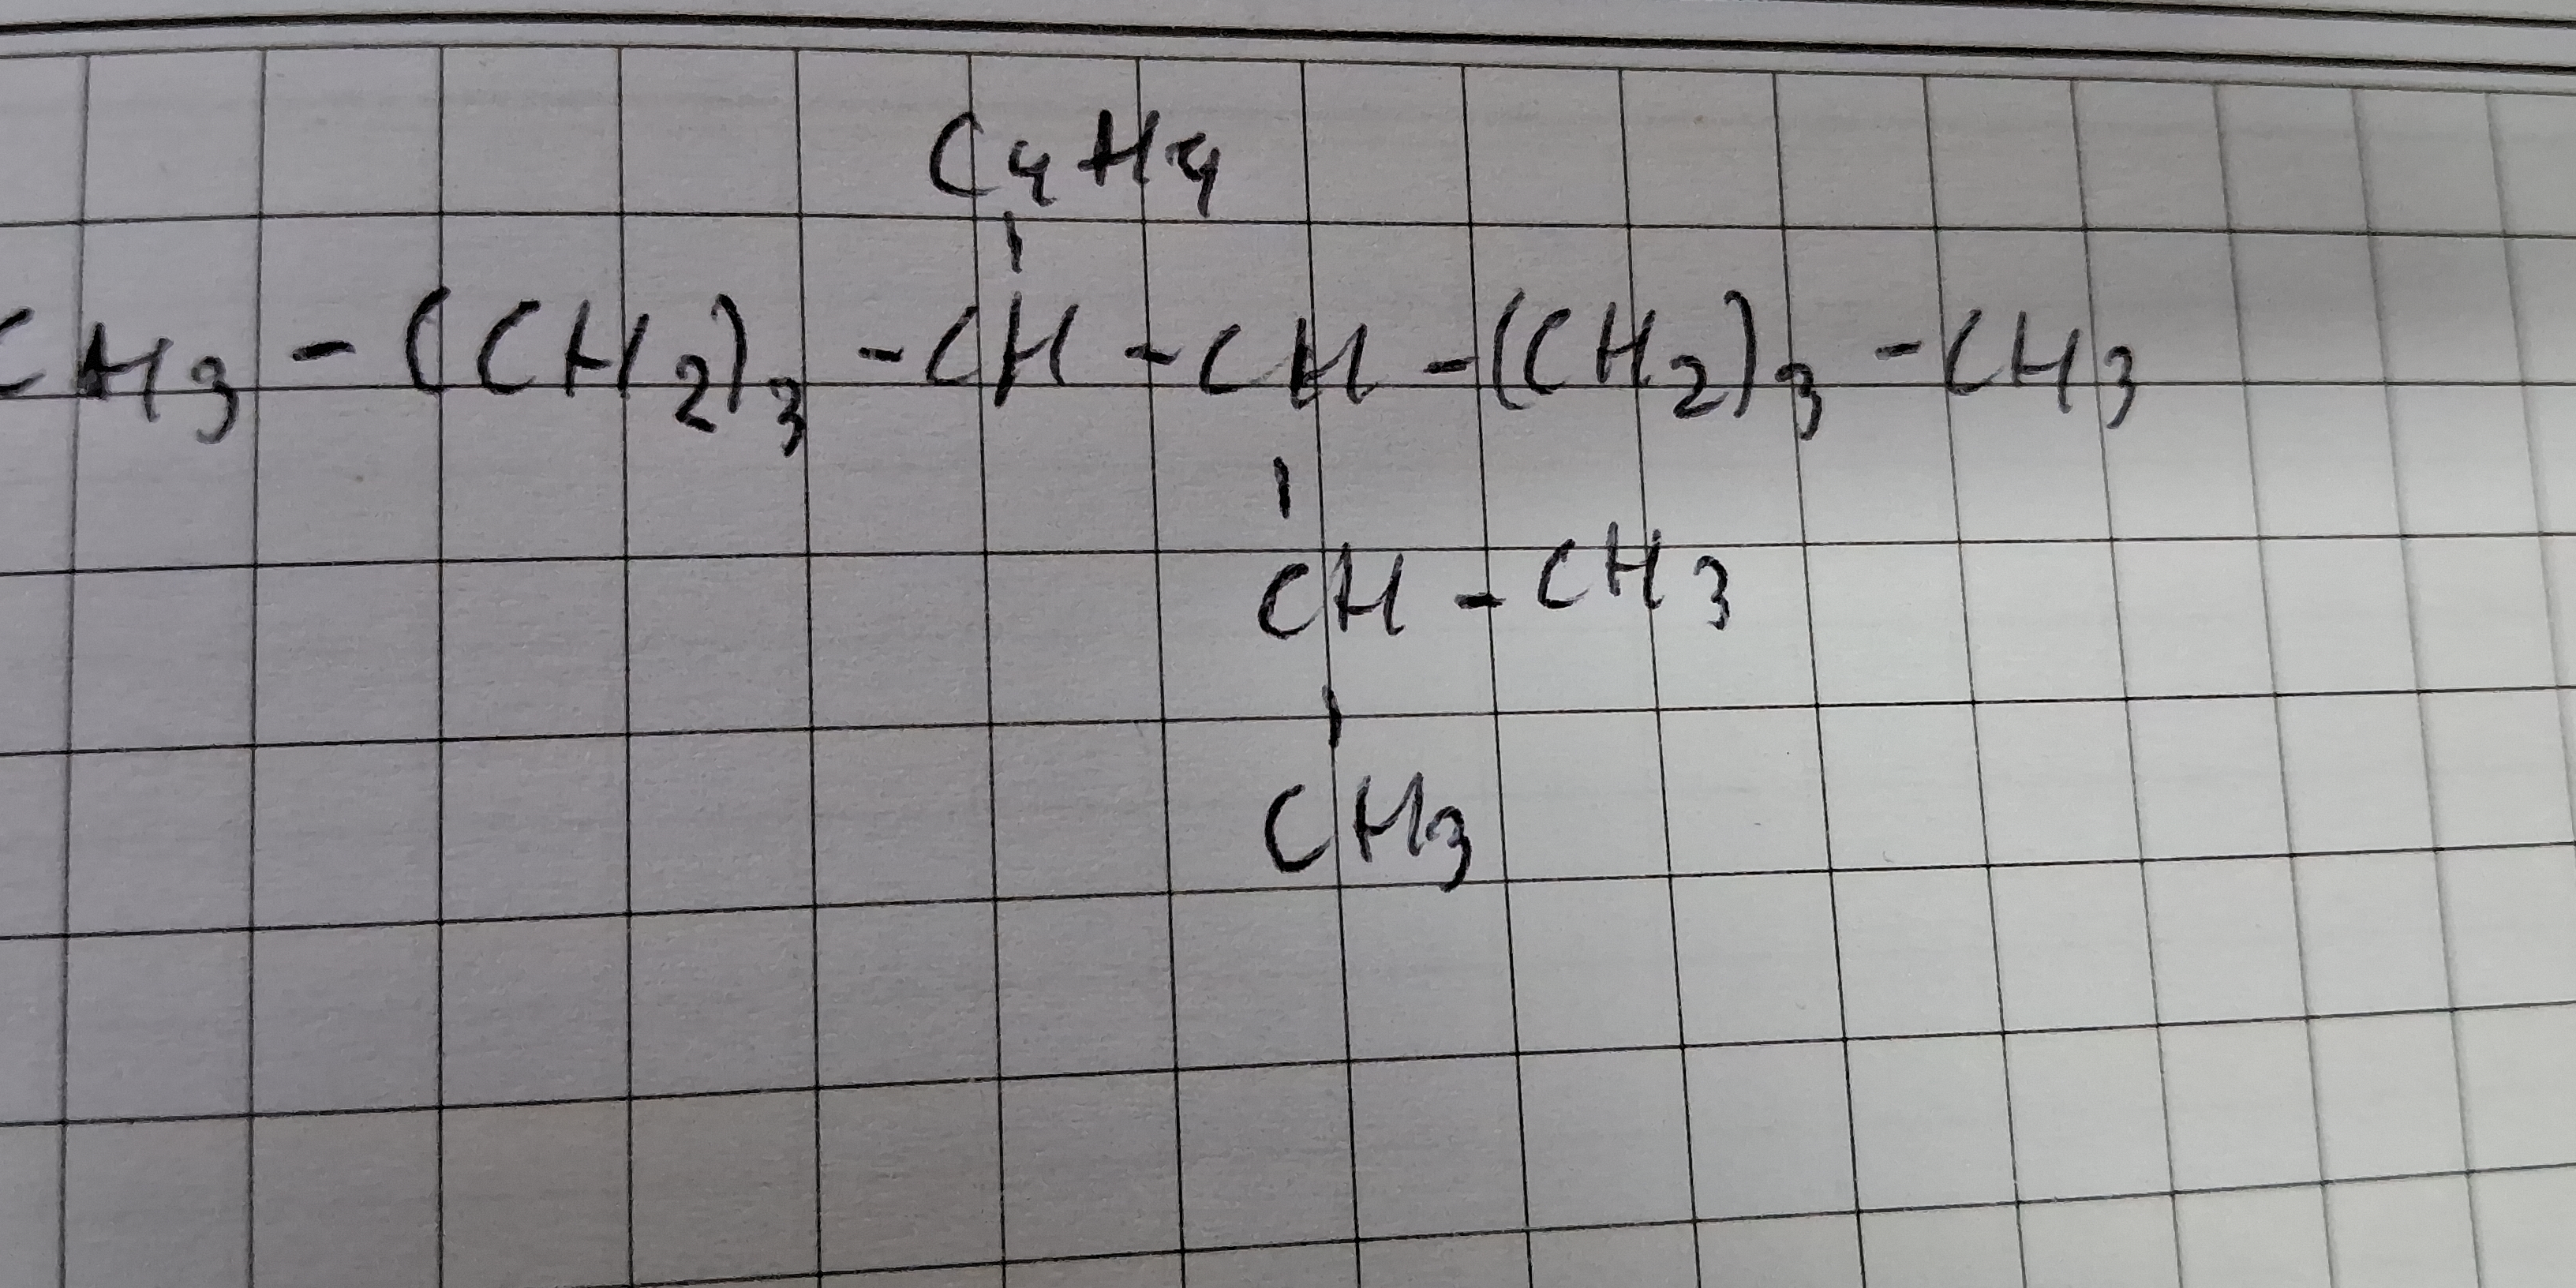 C4H9
CH3 - (CH2)3 - CH - CH - (CH2)3 - CH3
CH - CH3
CH3